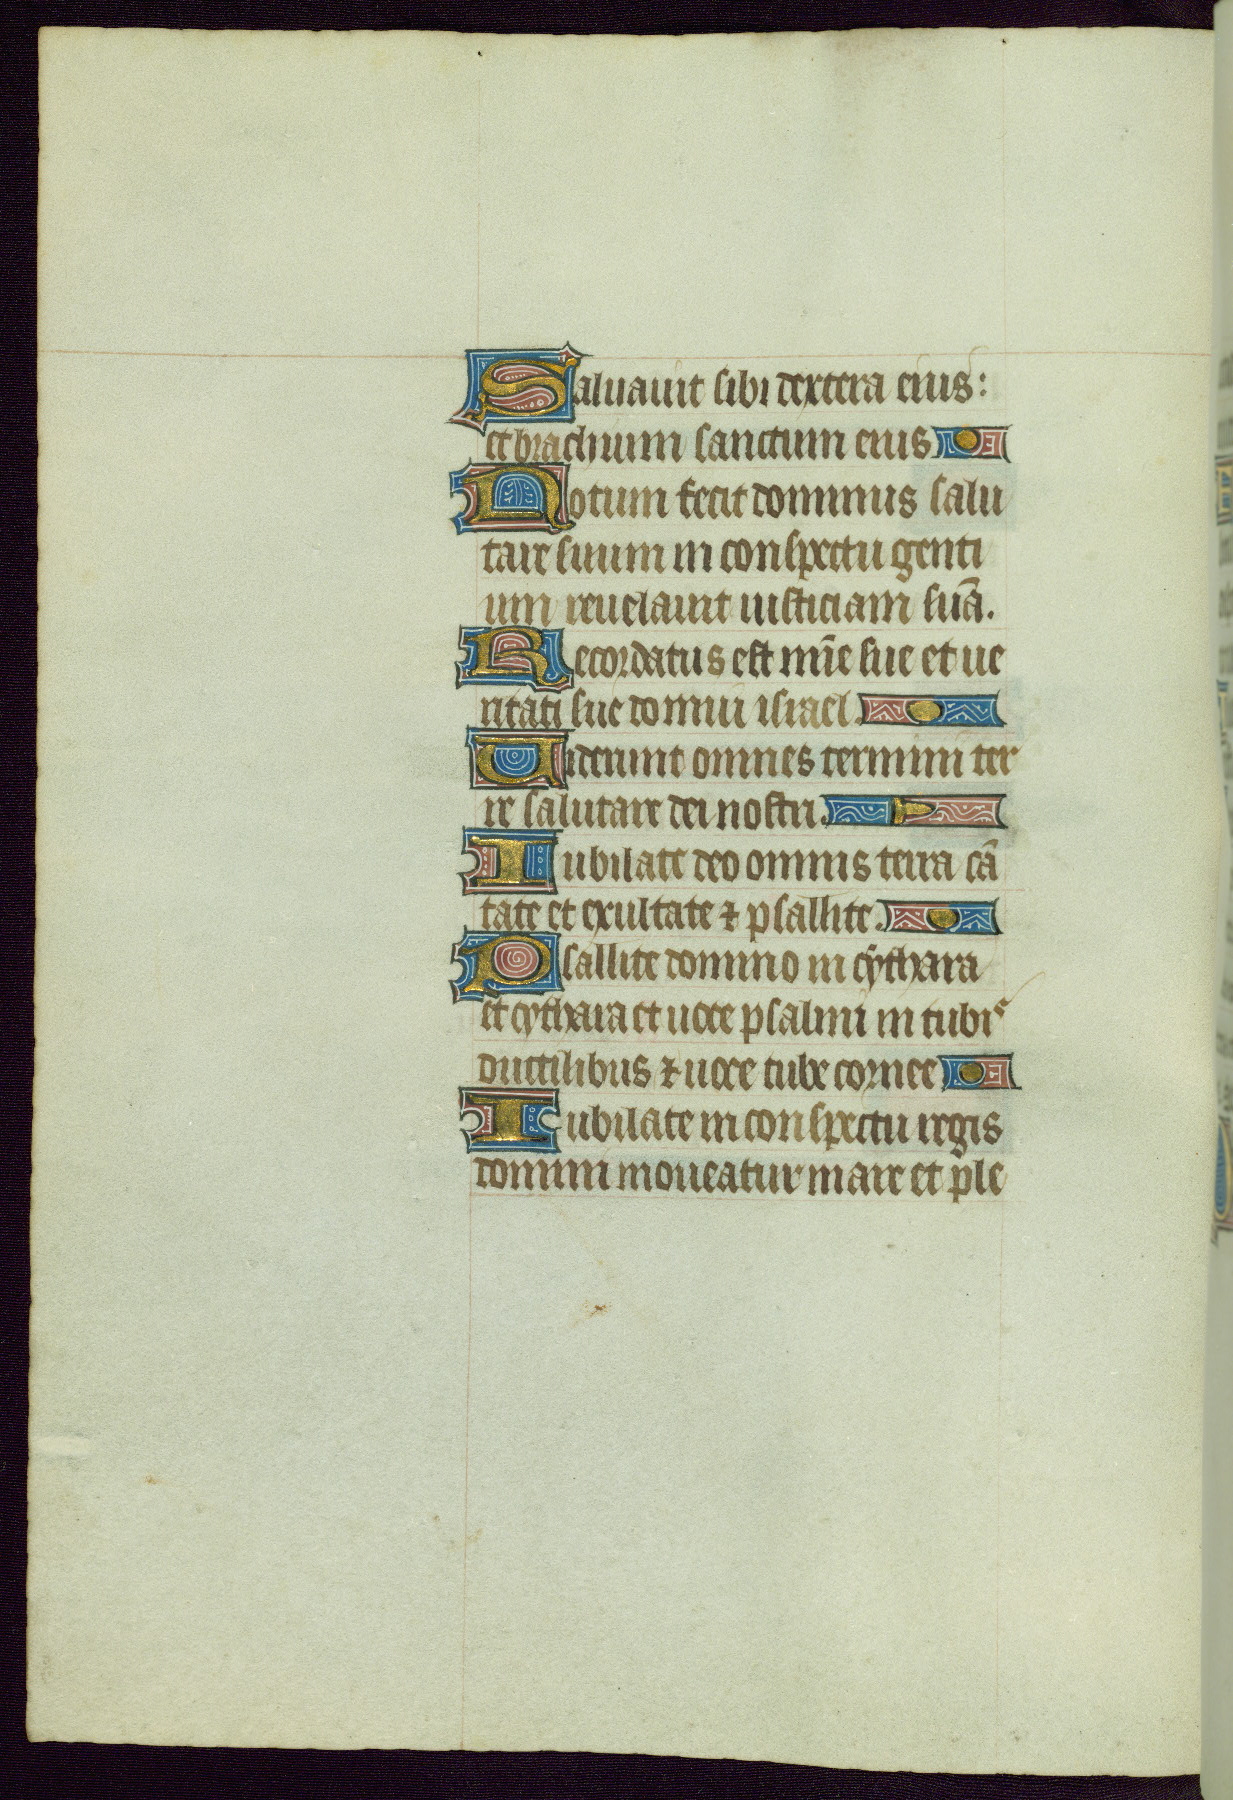 Saluauit sibi dextera eius:
et brachium sanctum eius
Notum fecit dominus salu
tare suum in conspectu genti
um reuelauit iusticiam suā.
Recordatus est mīe sue et ue
ritati sue domui israel.
Uiderunt omnes termini ter
re salutare dei nostri.
Iubilate deo omnis terra cā
tate et exultate ⁊ psallite.
Psallite domino in cythara
et cythara et uoce psalmi in tubis
ductilibus ⁊ uoce tube cornee
Iubilate in conspectu regis
domini moueatur mare et ple